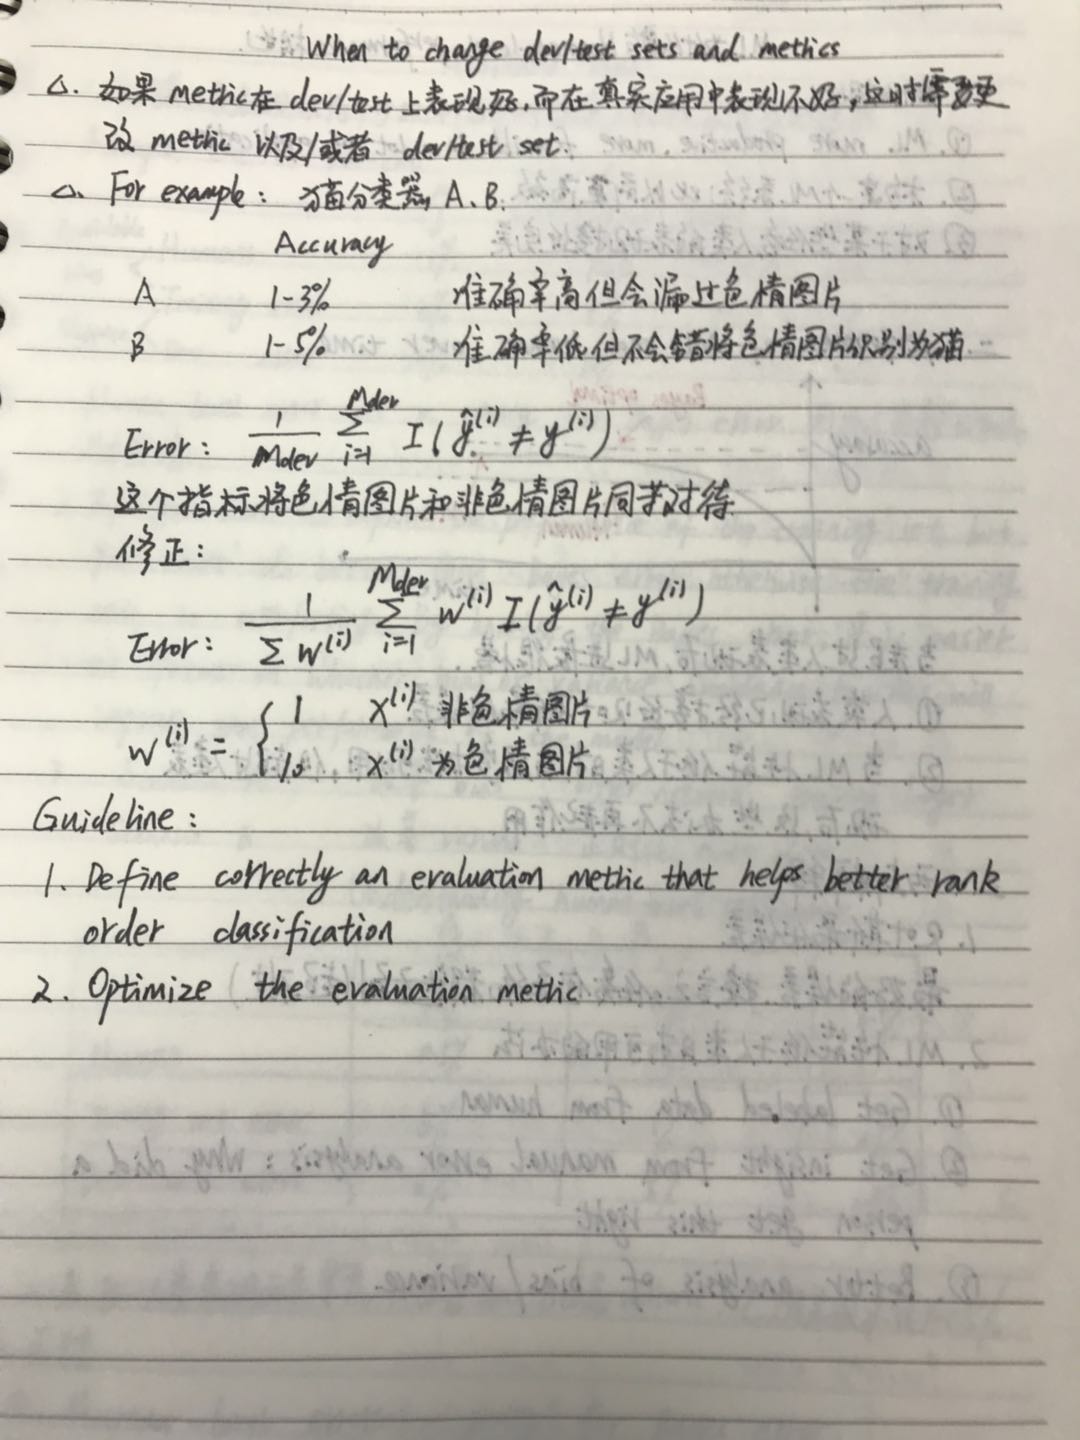 When to change dev/test sets and metrics
△. 如果 metric 在 dev/test 上表现好,而在真实应用中表现不好,这时需要更
改 metric 以及/或者 dev/test set.
△. For example: 猫分类器 A、B.
Accuracy
A 1-3% 准确率高但会漏过色情图片
B 1-5% 准确率低但不会错将色情图片识别为猫
Error: 1/Mdev ∑_{i=1}^{Mdev} I(ŷ^(i) ≠ y^(i))
这个指标将色情图片和非色情图片同等对待
修正:
Error: 1/∑w^(i) ∑_{i=1}^{Mdev} w^(i) I(ŷ^(i) ≠ y^(i))
w^(i) = { 1 x^(i) 非色情图片
10 x^(i) 为色情图片
Guideline:
1. Define correctly an evaluation metric that helps better rank
order classification
2. Optimize the evaluation metric